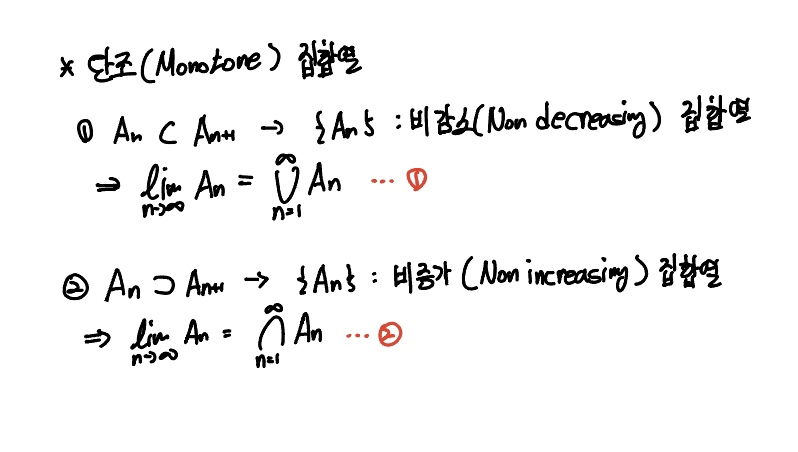 * 단조(Monotone) 집합열
① An ⊂ An+1 → {An} : 비감소(Non decreasing) 집합열
⇒ lim n→∞ An = ∞ ∪ n=1 An ... ①
② An ⊃ An+1 → {An} : 비증가(Non increasing) 집합열
⇒ lim n→∞ An = ∞ ∩ n=1 An ... ②